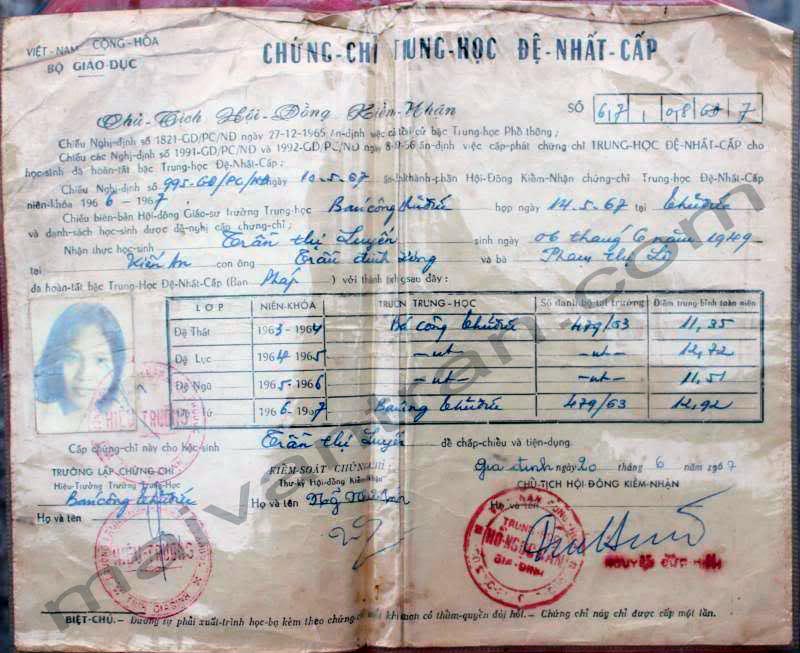 VIỆT-NAM CỘNG-HÒA
BỘ GIÁO-DỤC
CHỨNG-CHỈ TRUNG-HỌC ĐỆ-NHẤT-CẤP
Chủ-Tịch Hội-Đồng Kiểm-Nhận
SỐ 6,7
Chiếu Nghị-định số 1821-GD/PC/NĐ ngày 27-12-1965 ấn-định việc cải-tổ bậc Trung-học Phổ thông;
Chiếu các Nghị-định số 1991-GD/PC/NĐ và 1992-GD/PC/NĐ ngày ấn-định việc cấp-phát chứng-chỉ TRUNG-HỌC ĐỆ-NHẤT-CẤP cho
học-sinh đã hoàn-tất bậc Trung-học Đệ-Nhất-Cấp;
Chiếu Nghị-định số 995-GD/PC/NĐ ngày 10-5-67 ấn-định thành-phần Hội-Đồng Kiểm-Nhận chứng-chỉ Trung-học Đệ-Nhất-Cấp
niên-khóa 1966 - 1967
Chiếu biên-bản Hội-đồng Giáo-sư trường Trung-học Báncông Thủđức họp ngày 14.5.67 tại Thủđức
và danh-sách học-sinh được đề-nghị cấp chứng-chỉ;
Nhận thực học-sinh Trần thị Luyến sinh ngày 06 tháng 6 năm 1949
tại Kiến An con ông Trần đình và bà Phạm thị
đã hoàn-tất bậc Trung-Học Đệ-Nhất-Cấp (Ban Pháp) với thành-tích sau đây:
LỚP NIÊN-KHÓA TRƯỜNG TRUNG-HỌC Số danh-bộ tại trường Điểm trung-bình toàn niên
Đệ Thất 1963-1964 Bá công Thủđức 479/63
Đệ Lục 1964-1965 -nt- -nt- 12,72
Đệ Ngũ 1965-1966 -nt- -nt- 11,51
1966-1967 Báncông Thủđức 479/63 12,92
Cấp chứng-chỉ này cho học-sinh Trần thị Luyến để chấp-chiếu và tiện-dụng.
Gia định ngày 20 tháng 6 năm 1967
TRƯỞNG LẬP CHỨNG CHỈ
KIỂM-SOÁT CHỨNG-CHỈ
CHỦ-TỊCH HỘI-ĐỒNG KIỂM-NHẬN
Hiệu-Trưởng Trường Trung-học
Thư-ký Hội-đồng Kiểm-Nhận
Báncông Thủđức
Họ và tên
Họ và tên
Họ và tên
HIỆU-TRƯỞNG
HIỆU-TRƯỞNG
TRUNG-HỌC
HỒ-NGỌC-CẨN
GIA-ĐỊNH
BIỆT-CHÚ.- Đương sự phải xuất-trình học-bạ kèm theo chứng-chỉ mỗi khi quan có thẩm-quyền đòi hỏi.- Chứng chỉ này chỉ được cấp một lần.
maivantran.com